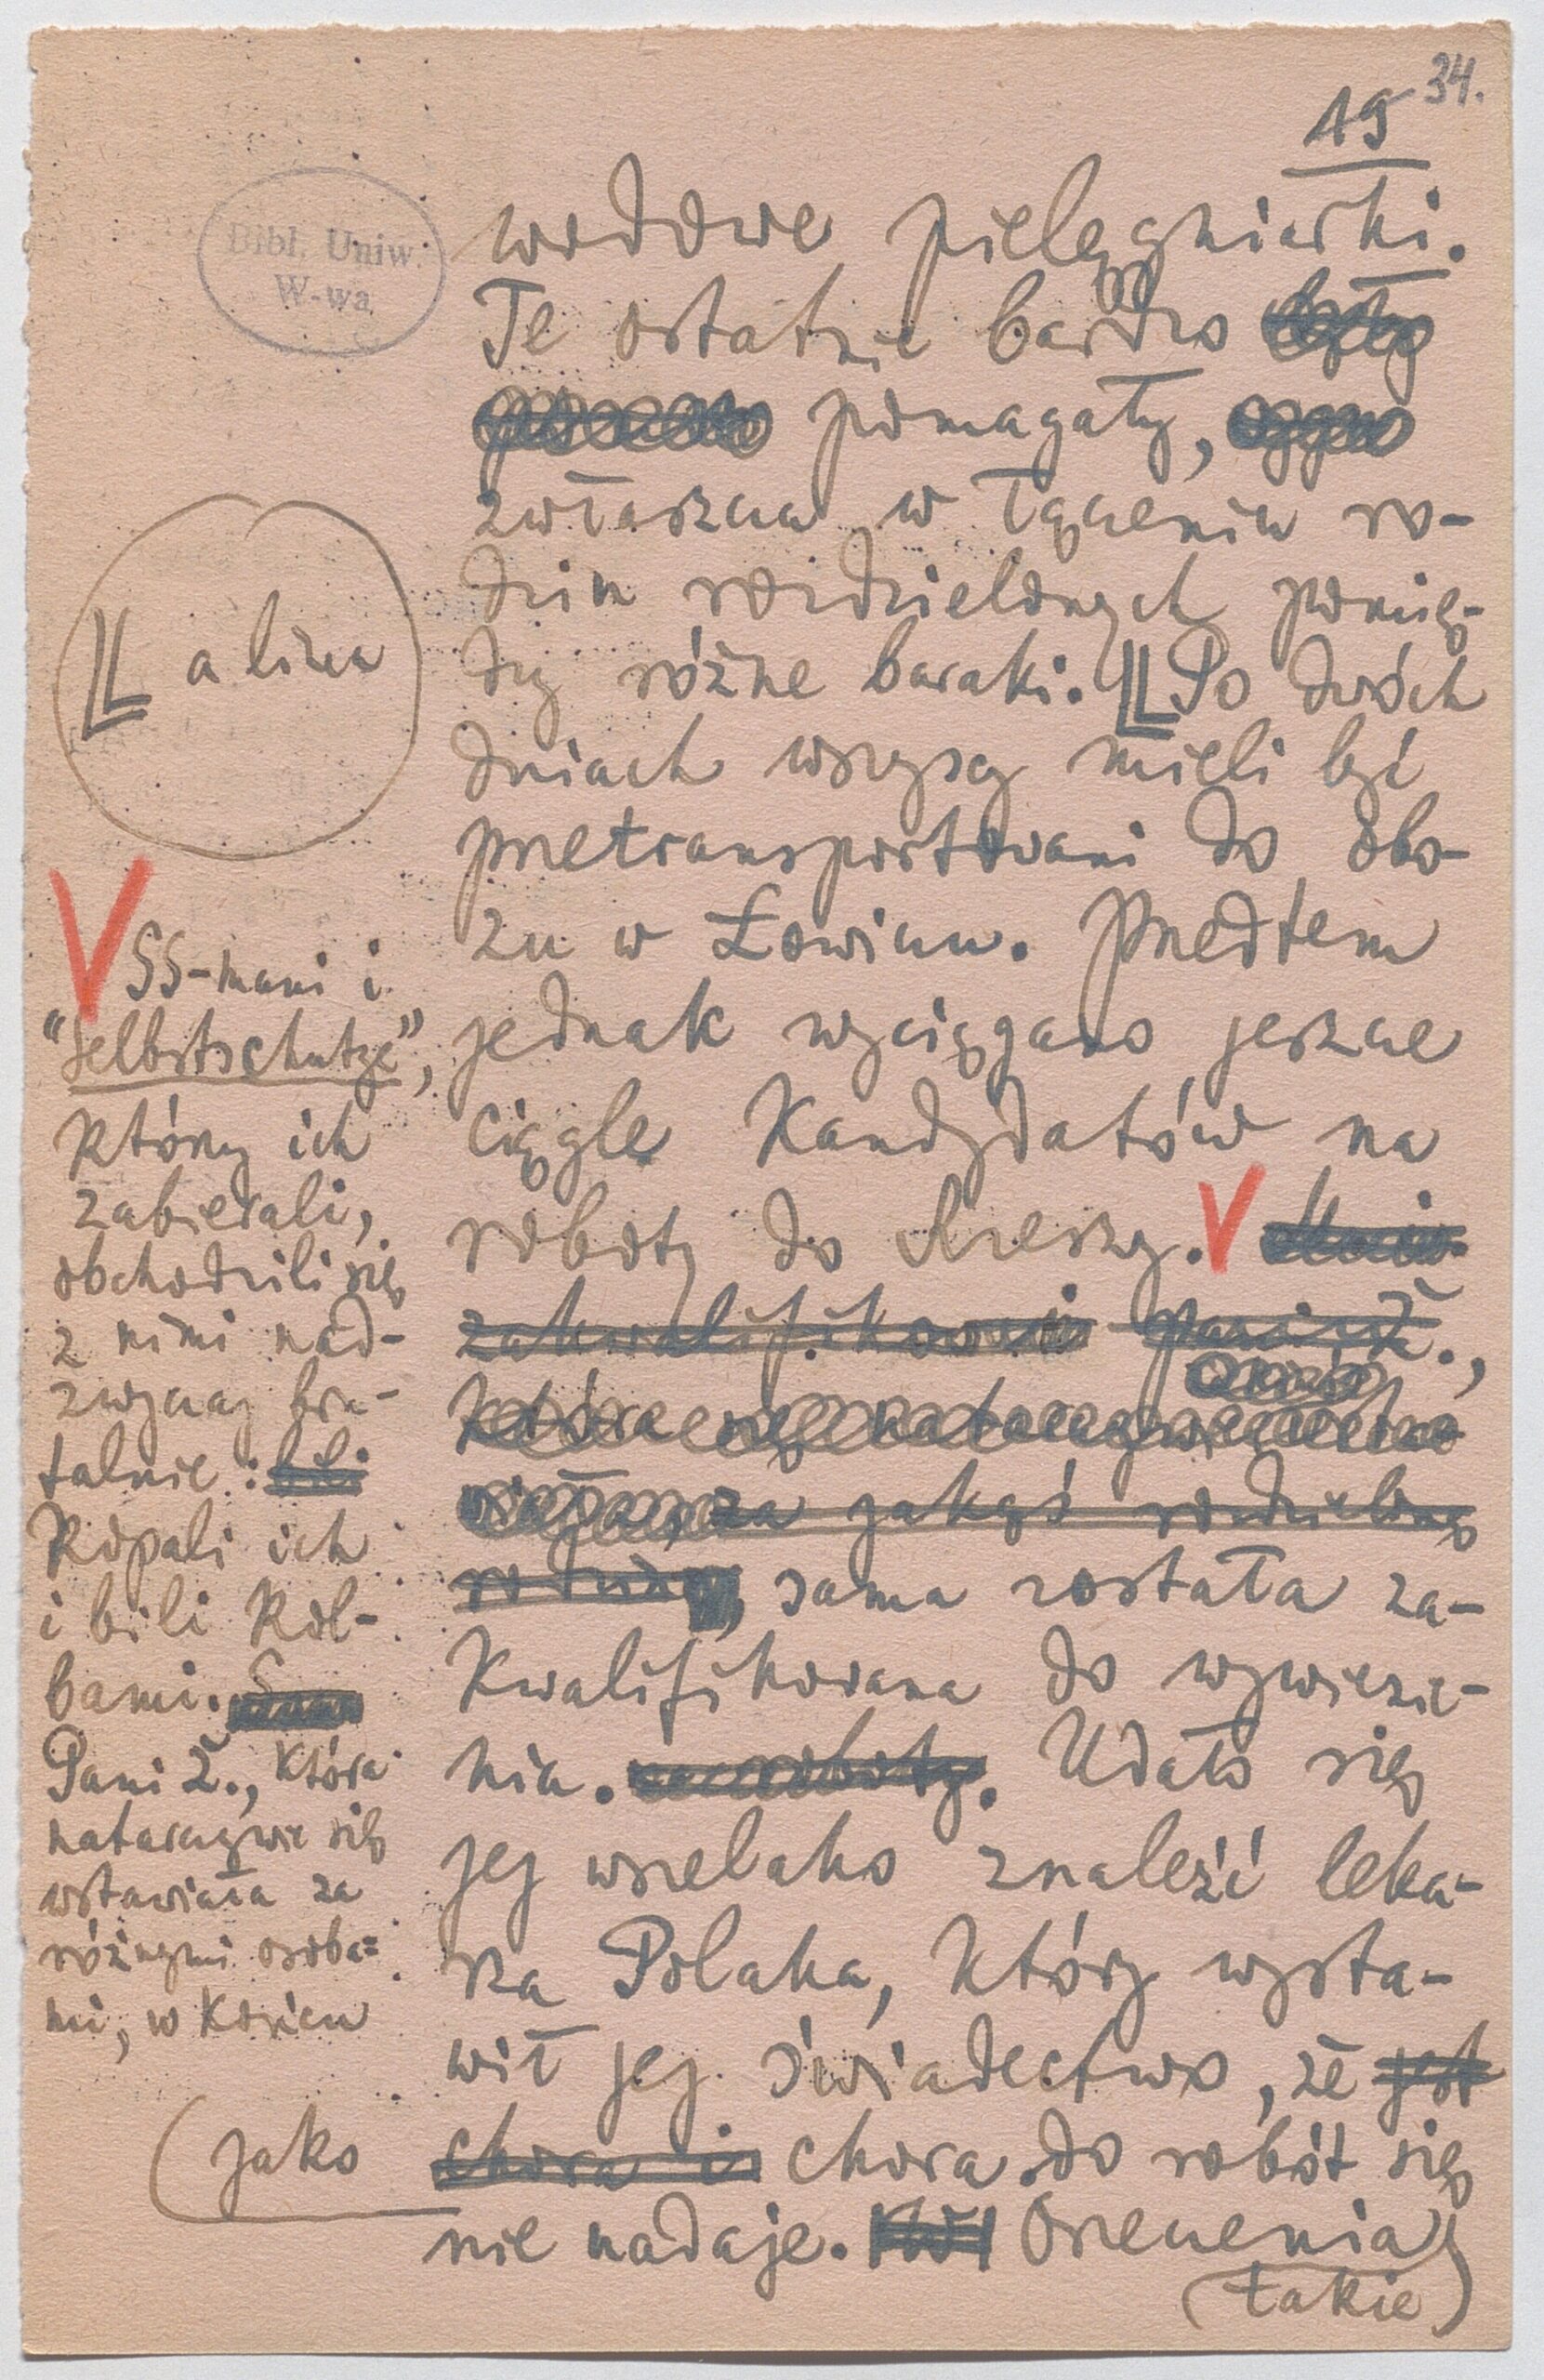 34.
19
Bibl. Uniw.
W-wa
wodowe pielęgniarki.
Te ostatnie bardzo były
pomagały,
zwłaszcza w łączeniu ro-
dzin rozdzielonych pomię-
dzy różne baraki. Po dwóch
dniach wszyscy mieli być
przetransportowani do obo-
zu w Łowiczu. Przedtem
jednak wyciągano jeszcze
ciągle kandydatów na
roboty do Rzeszy. V
zakwalifikowani pani Ż.,
która się natarczywie
za jakąś rozdzieloną
rodzinę, sama została za-
kwalifikowana do wywiezie-
nia. na roboty. Udało się
jej wszelako znaleźć leka-
rza Polaka, który wysta-
wił jej świadectwo, że jest
chora i chora do robót się
nie nadaje. Orzeczenia
(takie)
a liczu
V SS-mani i
"Selbstschutze",
którzy ich
zabierali,
obchodzili się
z nimi nad-
zwyczaj bru-
talnie: bili
kopali ich
i bili kol-
bami.
Pani Ż., która
natarczywie się
wstawiała za
różnymi osoba-
mi, w końcu
(jako